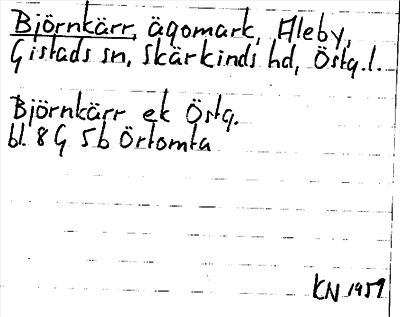 Björnkärr, ägomark, Aleby,
Gistads sn, Skärkinds hd, Östg.l.
Björnkärr ek Östg.
bl. 8G 5b Örtomta
KN 1951